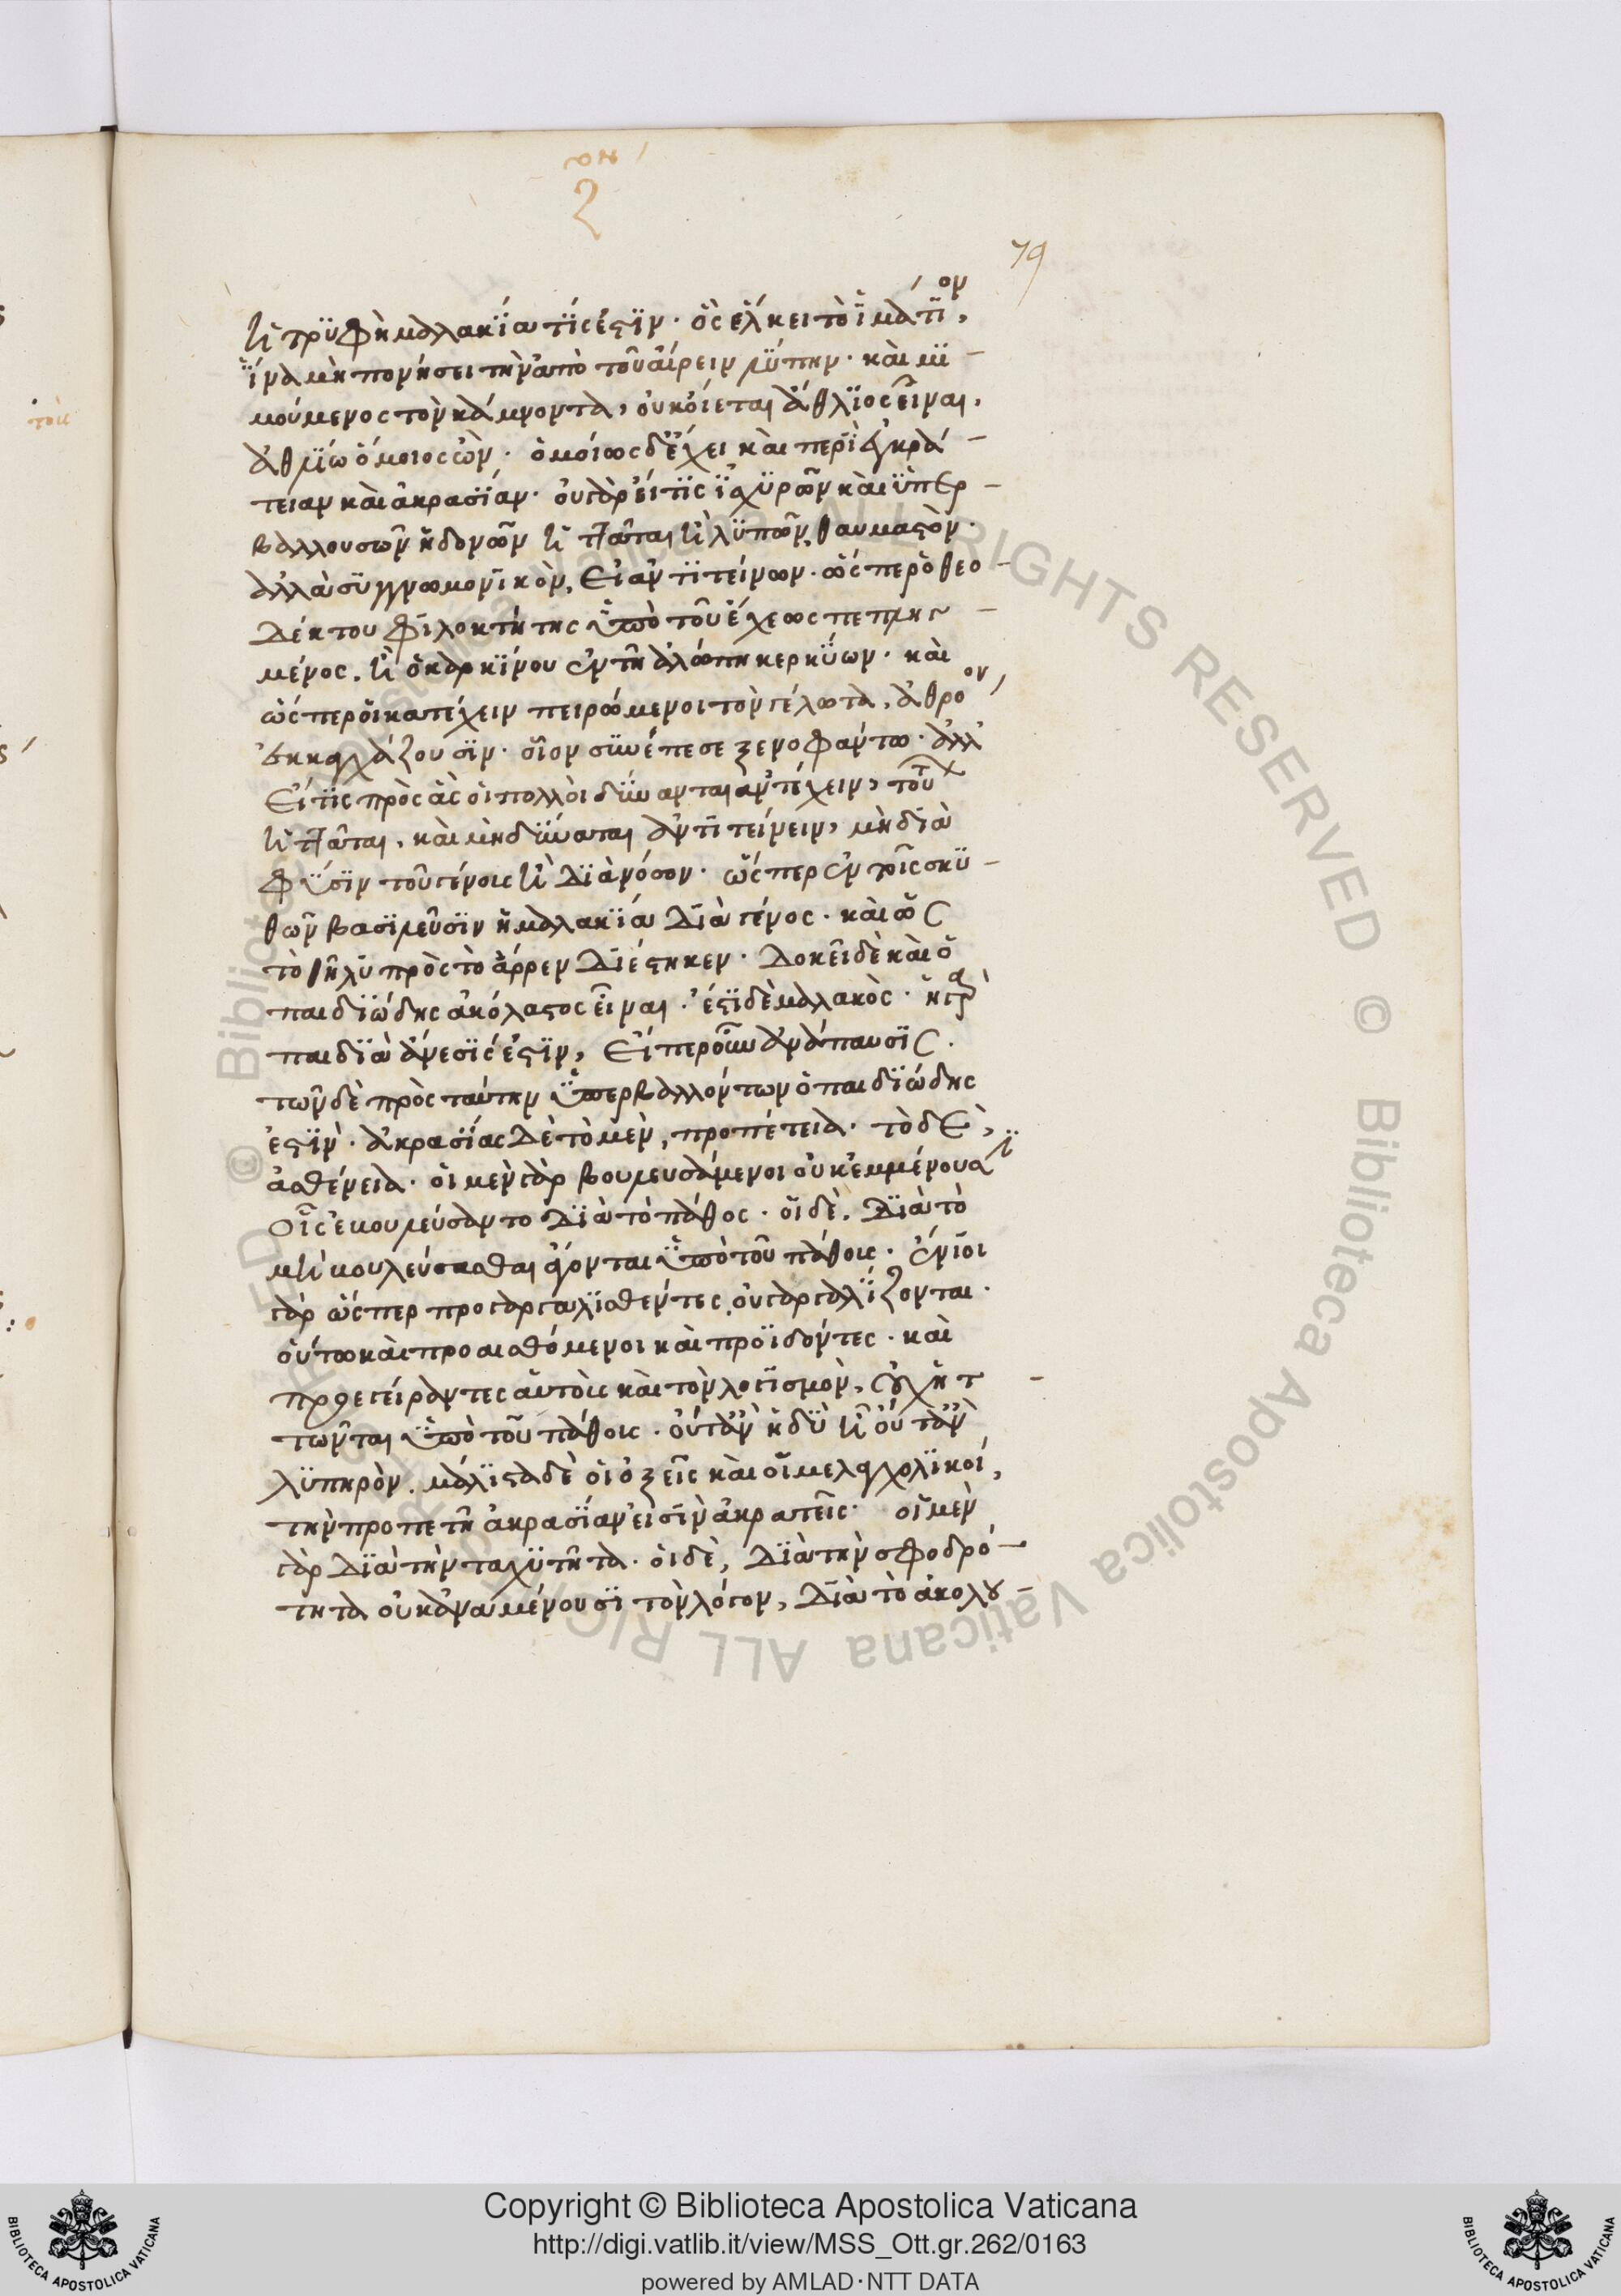 ον
ζ
79
ἢ τρϋφὴ μαλακΐα τΐς ἐστϊν· ὃς ἕλκει τὸ ἱμάτιον,
ἵνα μὴ πονήσει τὴν ἀπὸ τοῦ αἴρειν λύπην· καὶ μι–
μούμενος τὸν κάμνοντα, οὐκ οἴεται ἄθλϊος εἶναι,
ἀθλίω ὅμοιος ὢν· ὁμοίως δ᾽ ἔχει καὶ περὶ ἐγκρά–
τειαν καὶ ἀκρασίαν· οὐ γὰρ εἴ τις ἰσχυρῶν καὶ ὑπερ–
βαλλουσῶν ἡδονῶν ἡττᾶται ἢ λυπῶν, θαυμαστὸν·
ἀλλὰ συγγνωμονικὸν, εἰ ἀντιτείνων· ὥσπερ ὁ θεο–
δέκτου φιλοκτήτης ὑπὸ τοῦ ἔχεως πεπληγ–
μένος. ἢ ὁ καρκίνου ἐν τῇ ἀλόπη κερκύων· καὶ
ὥσπερ οἱ κατέχειν πειρώμενοι τὸν γέλωτα, ἀθρόον
ἐκκαχλάζουσιν· οἷον συνέπεσε ξενοφάντω· ἀλλ᾽
εἴ τις πρὸς ἃς οἱ πολλοὶ δύνανται ἀντέχειν, τούτων
ἡττᾶται, καὶ μὴ δύναται ἀντιτείνειν, μὴ διὰ
φύσιν τοῦ γένους ἢ διὰ νόσον· ὥσπερ ἐν τοῖς σκυ–
θῶν βασιλεῦσιν ἡ μαλακία διὰ γένος· καὶ ὡς
τὸ θῆλυ πρὸς τὸ ἄρρεν διέστηκεν· δοκεῖ δὲ καὶ ὁ
παιδιώδης ἀκόλαστος εἶναι· ἔστι δὲ μαλακὸς· ἡ γὰρ
παιδιὰ ἄνεσίς ἐστιν, εἴπερ οὖν ἀνάπαυσις.
τῶν δὲ πρὸς ταύτην ὑπερβαλλόντων ὁ παιδιώδης
ἐστὶν· ἀκρασίας δὲ τὸ μὲν, προπέτεια· τὸ δὲ,
ἀσθένεια· οἱ μὲν γὰρ βουλευσάμενοι οὐκ ἐμμένουσι
οἷς ἐβουλεύσαντο διὰ τὸ πάθος· οἱ δὲ, διὰ τὸ
μὴ βουλεύσασθαι ἄγονται ὑπὸ τοῦ πάθους· ἔνιοι
γὰρ ὥσπερ προγαργαλισθέντες, οὐ γαργαλίζονται·
οὕτω καὶ προαισθόμενοι καὶ προϊδόντες· καὶ
προεγείραντες αὑτοὺς καὶ τὸν λογισμὸν, οὐχ ἡτ–
τῶνται ὑπὸ τοῦ πάθους· οὔτ᾽ ἂν ἡδὺ ἢ οὔτ᾽ ἂν
λυπηρὸν. μάλιστα δὲ οἱ ὀξεῖς καὶ οἱ μελαγχολικοί,
τὴν προπετῆ ἀκρασίαν εἰσὶν ἀκρατεῖς· οἱ μὲν
γὰρ διὰ τὴν ταχυτῆτα· οἱ δὲ, διὰ τὴν σφοδρό–
τητα οὐκ ἀναμένουσι τὸν λόγον, διὰ τὸ ἀκολου–
Copyright © Biblioteca Apostolica Vaticana
http://digi.vatlib.it/view/MSS_Ott.gr.262/0163
powered by AMLAD·NTT DATA